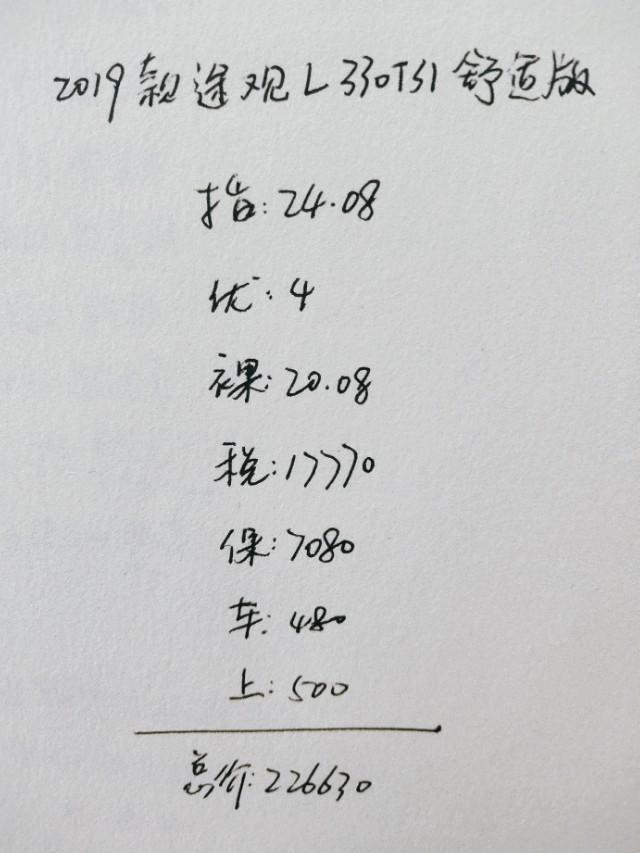 2019款途观L330TSI舒适版
指:24.08
优:4
裸:20.08
税:17770
保:7080
车:480
上:500
总价:226630